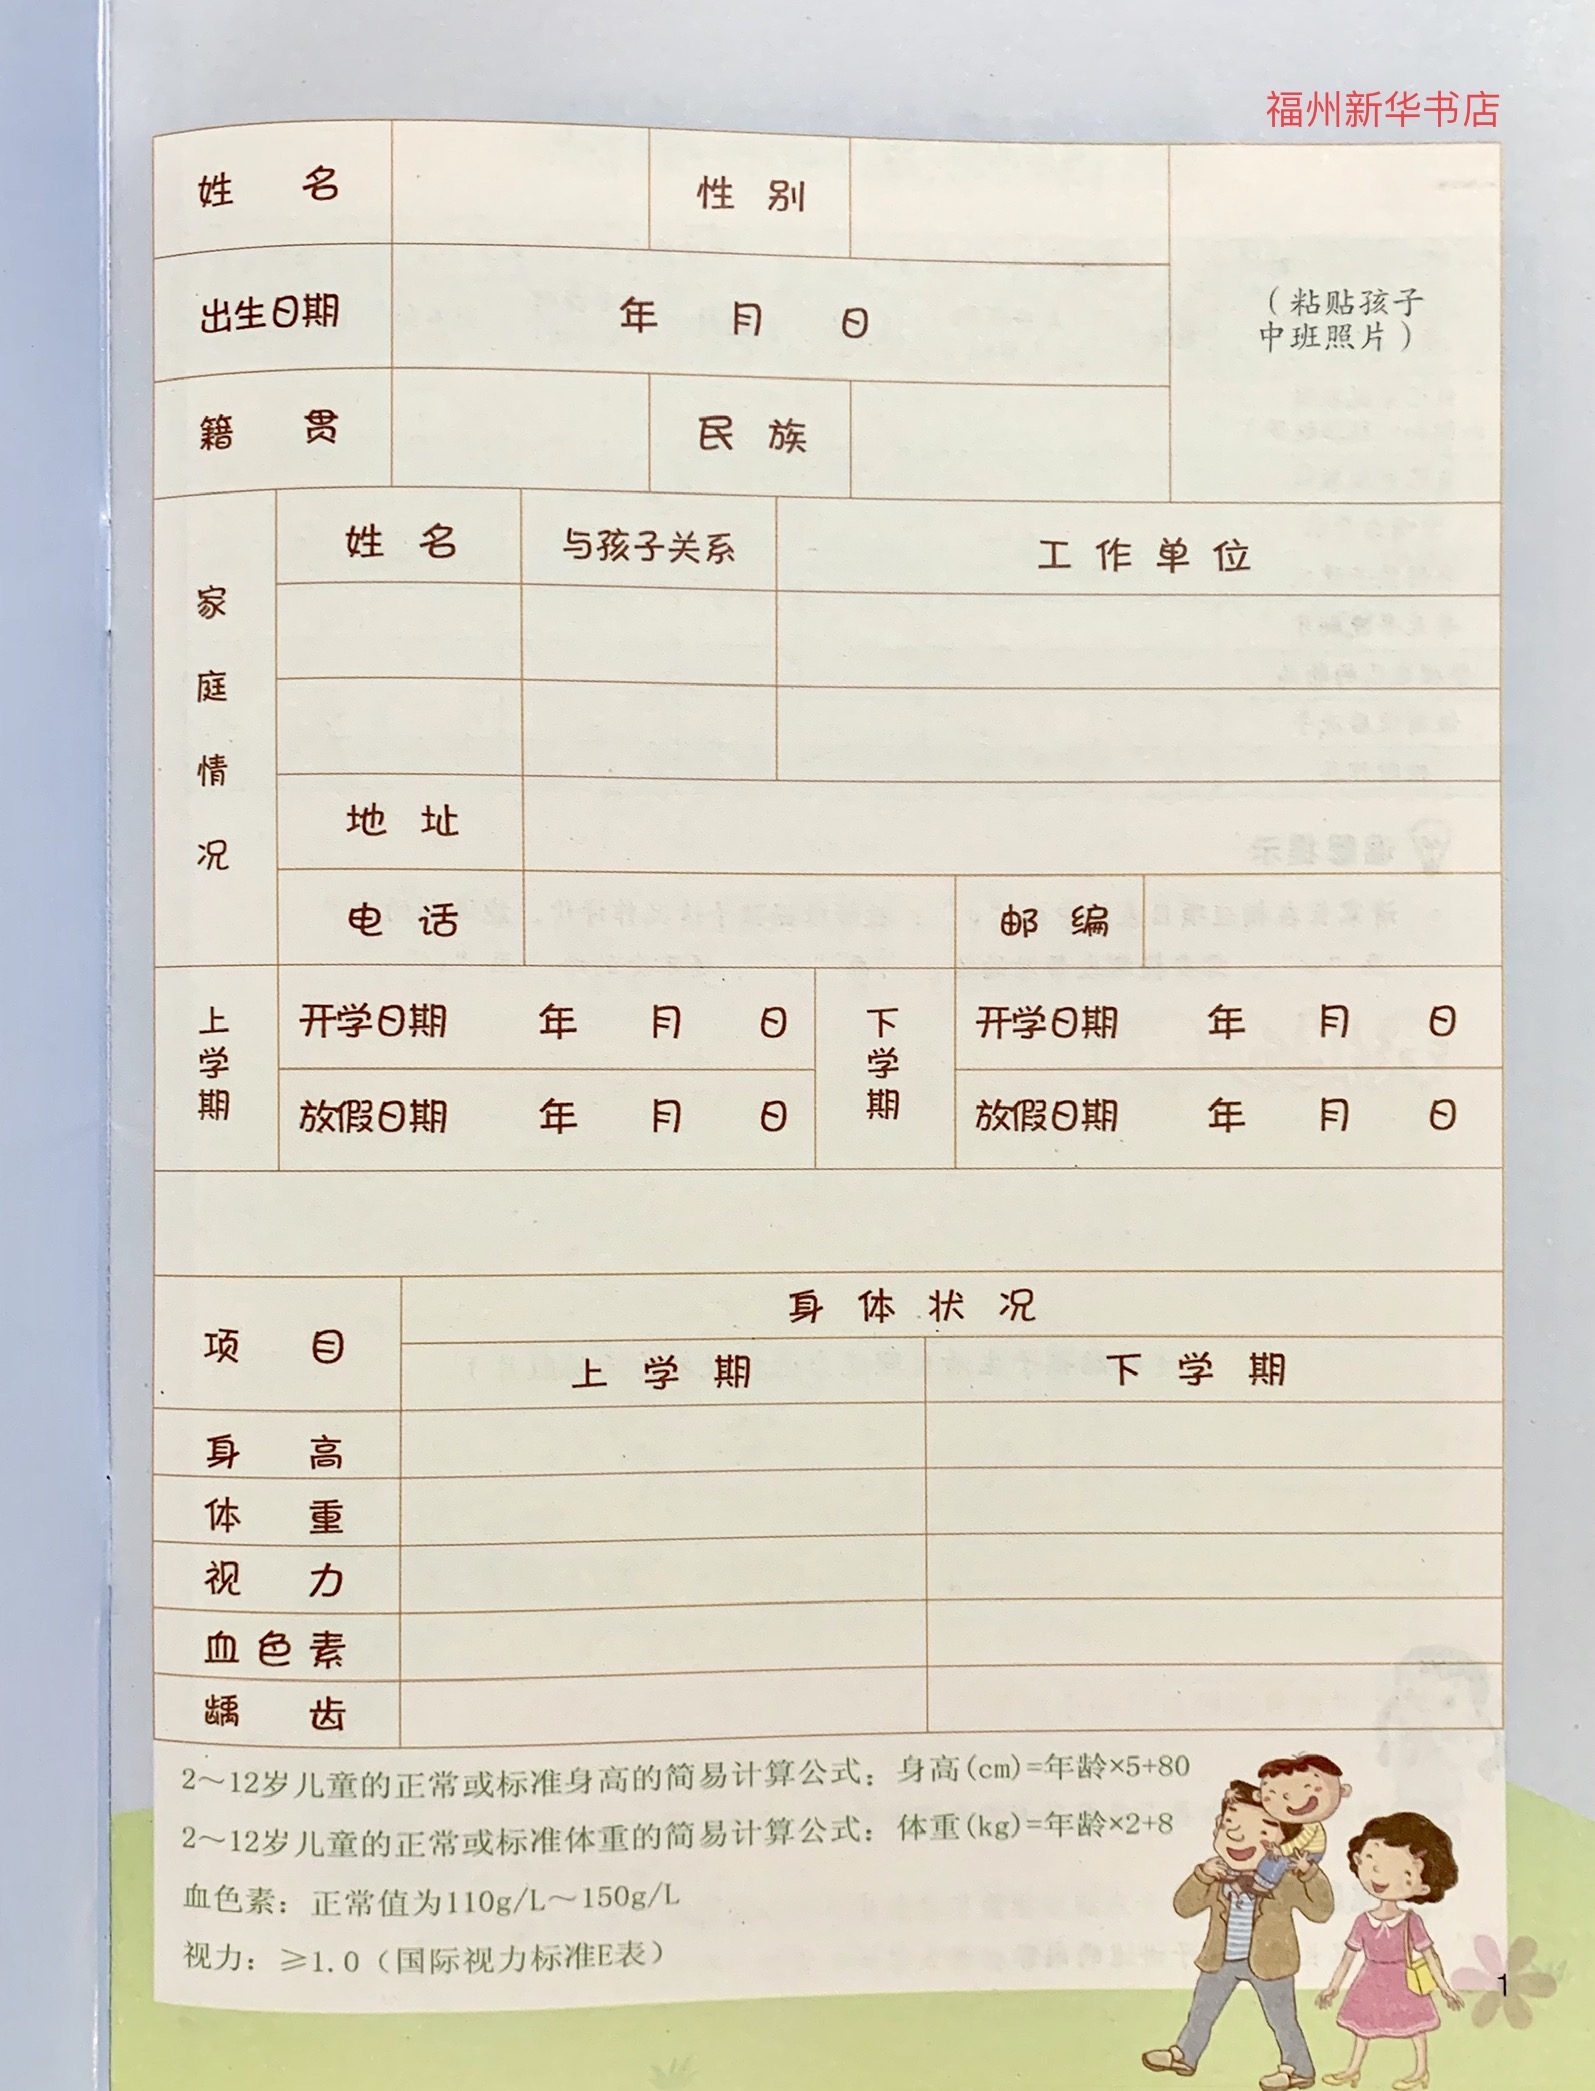 福州新华书店
姓名 性别
出生日期 年 月 日
(粘贴孩子
中班照片)
籍贯 民族
家庭情况
姓名 与孩子关系 工作单位
地址
电话 邮编
上学期 开学日期 年 月 日 下学期 开学日期 年 月 日
放假日期 年 月 日 放假日期 年 月 日
项目 身体状况
上学期 下学期
身高
体重
视力
血色素
龋齿
2～12岁儿童的正常或标准身高的简易计算公式：身高(cm)=年龄×5+80
2～12岁儿童的正常或标准体重的简易计算公式：体重(kg)=年龄×2+8
血色素：正常值为110g/L～150g/L
视力：≥1.0（国际视力标准E表）
1